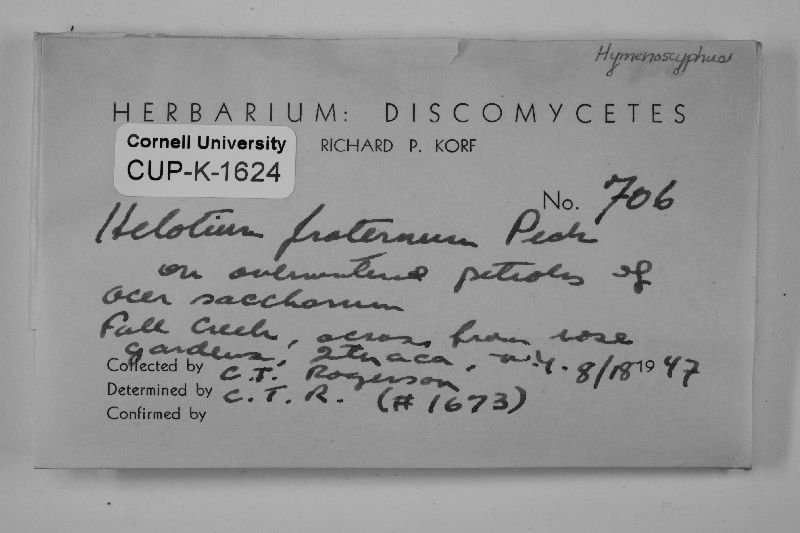 Hymenoscyphus
HERBARIUM: DISCOMYCETES
Cornell University
CUP-K-1624
RICHARD P. KORF
No. 706
Helotium fraternum Peck
on overwintered petioles of
acer saccharum
Fall Creek, across from rose
gardens, Ithaca, N.Y. 8/18 1947
Collected by C.T. Rogerson
Determined by C.T.R. (# 1673)
Confirmed by